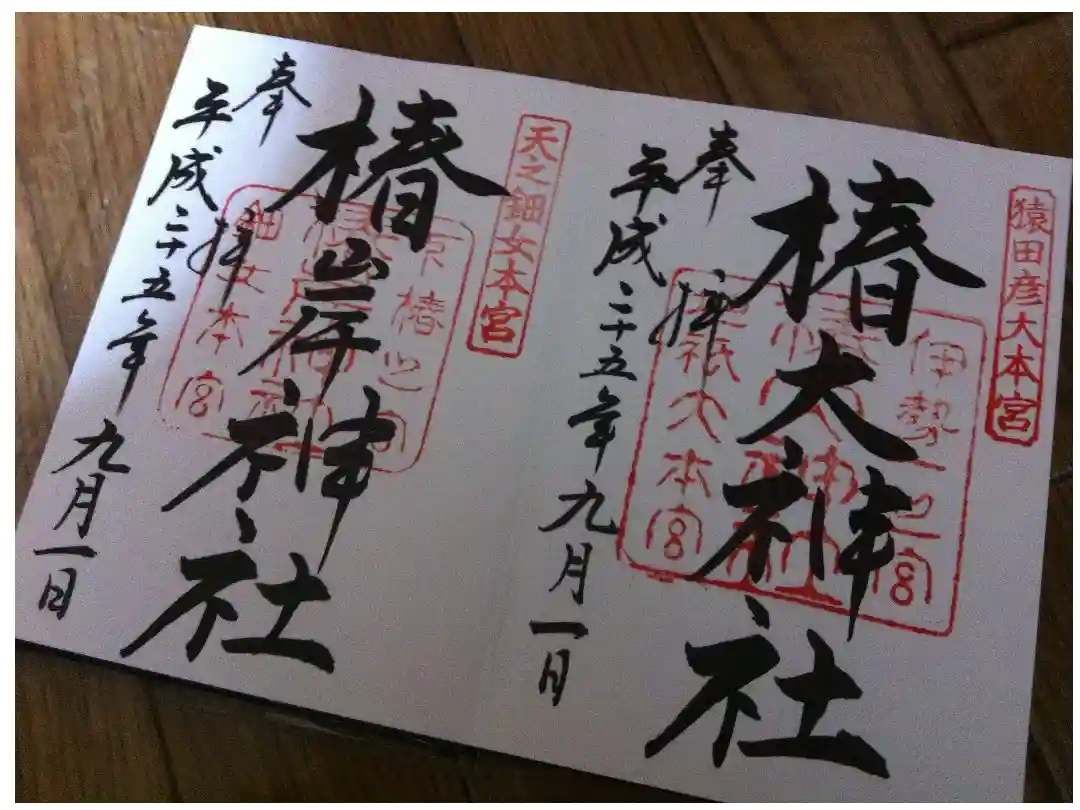 猿田彦大本宮
伊勢一之宮
椿大神社
地祇大本宮
奉拝
平成二十五年九月一日
天之鈿女本宮
椿岸神社
鈿女本宮
奉拝
平成二十五年九月一日